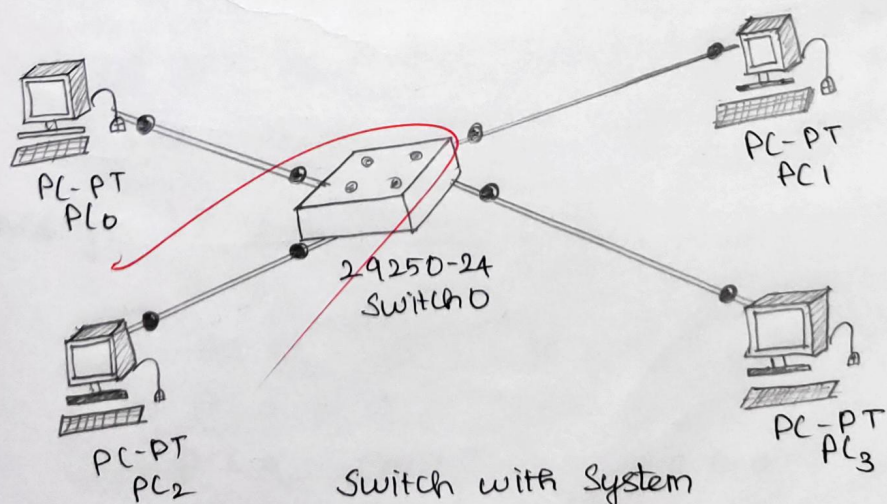 PC-PT
PC0
PC-PT
PC1
29250-24
Switch0
PC-PT
PC2
PC-PT
PC3
Switch with System